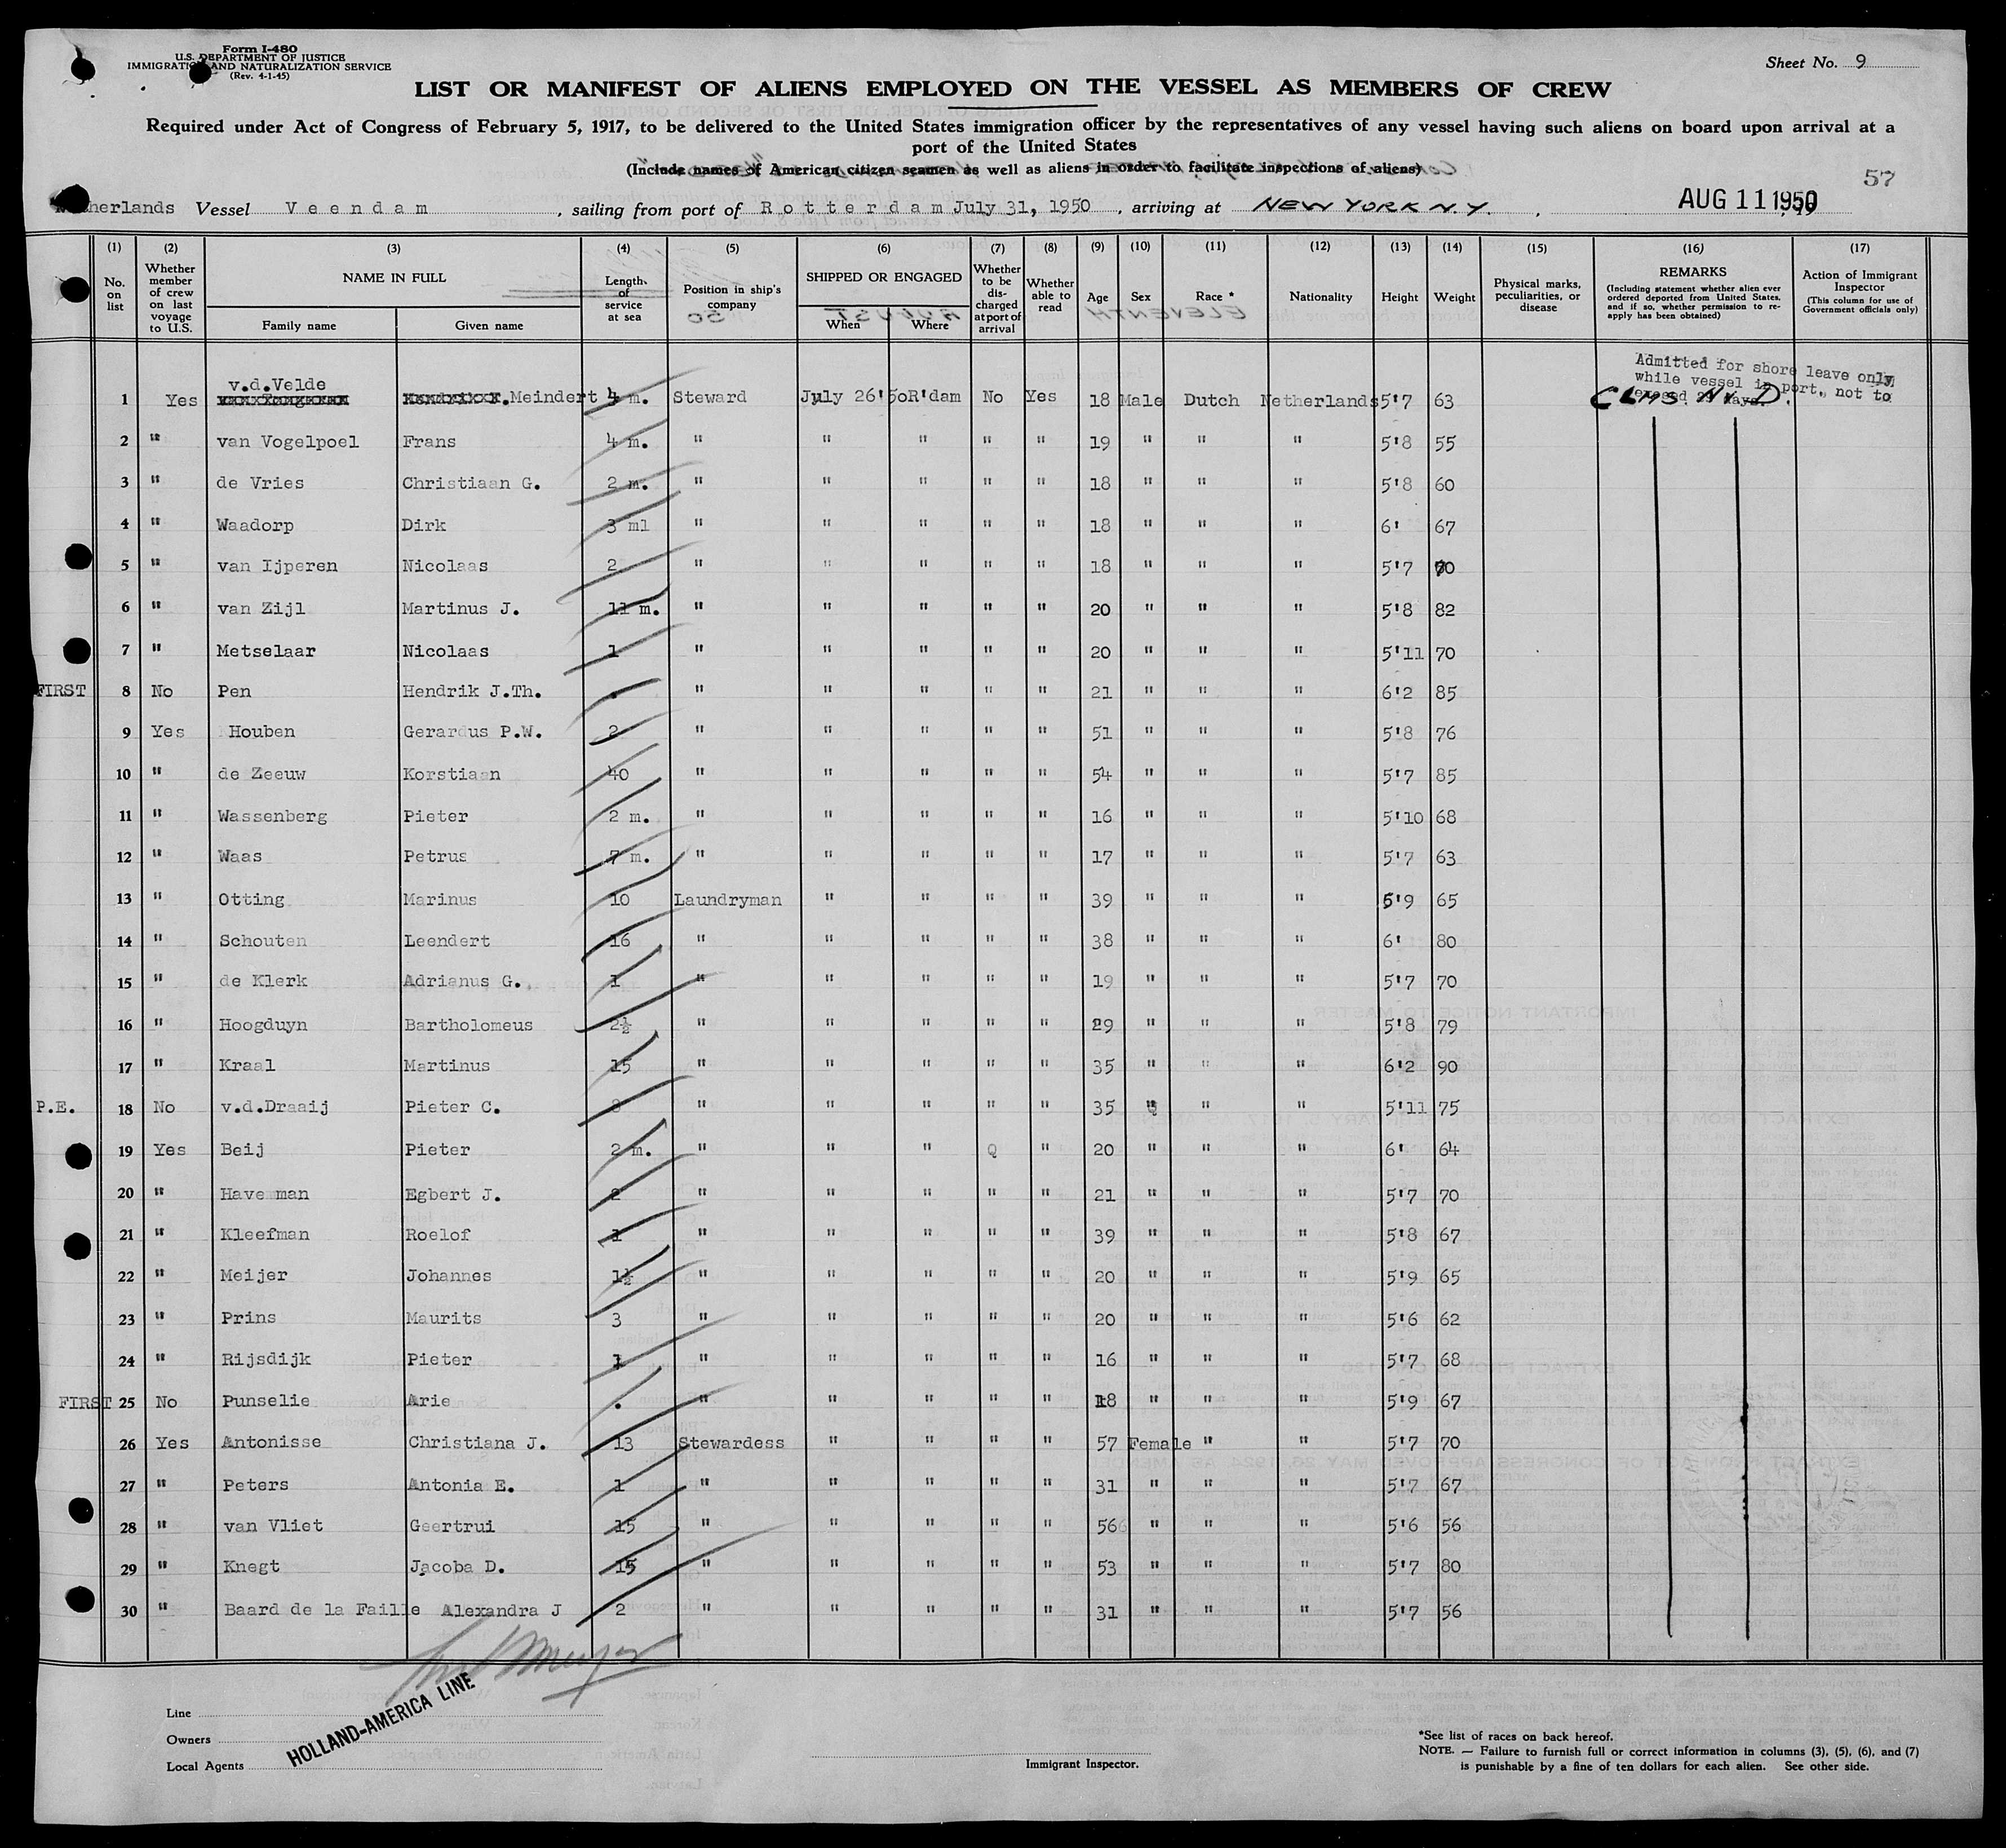 Form I-480
U.S. DEPARTMENT OF JUSTICE
IMMIGRATION AND NATURALIZATION SERVICE
(Rev. 4-1-45)
Sheet No. 9
LIST OR MANIFEST OF ALIENS EMPLOYED ON THE VESSEL AS MEMBERS OF CREW
Required under Act of Congress of February 5, 1917, to be delivered to the United States immigration officer by the representatives of any vessel having such aliens on board upon arrival at a
port of the United States
(Include names of American citizen seamen as well as aliens in order to facilitate inspections of aliens)
57
Netherlands Vessel Veendam, sailing from port of Rotterdam July 31, 1950, arriving at NEW YORK N.Y. , AUG 11 1950
(1) (2) (3) (4) (5) (6) (7) (8) (9) (10) (11) (12) (13) (14) (15) (16) (17)
No. on list Whether member of crew on last voyage to U.S. NAME IN FULL Family name Given name Length of service at sea Position in ship's company SHIPPED OR ENGAGED When Where Whether to be discharged at port of arrival Whether able to read Age Sex Race * Nationality Height Weight Physical marks, peculiarities, or disease REMARKS (Including statement whether alien ever ordered deported from United States, and if so, whether permission to re-apply has been obtained) Action of Immigrant Inspector (This column for use of Government officials only)
Admitted for shore leave only
while vessel in port, not to
1 Yes v.d.Velde Meindert 4 m. Steward July 26'50 R'dam No Yes 18 Male Dutch Netherlands 5'7 63
2 " van Vogelpoel Frans 4 m. " " " " " 19 " " " 5'8 55
3 " de Vries Christiaan G. 2 m. " " " " " 18 " " " 5'8 60
4 " Waadorp Dirk 3 ml " " " " " 18 " " " 6' 67
5 " van Ijperen Nicolaas 2 " " " " " 18 " " " 5'7 70
6 " van Zijl Martinus J. 11 m. " " " " " 20 " " " 5'8 82
7 " Metselaar Nicolaas 1 " " " " " 20 " " " 5'11 70
FIRST 8 No Pen Hendrik J.Th. . " " " " " 21 " " " 6'2 85
9 Yes Houben Gerardus P.W. 2 " " " " " 51 " " " 5'8 76
10 " de Zeeuw Korstiaan 40 " " " " " 54 " " " 5'7 85
11 " Wassenberg Pieter 2 m. " " " " " 16 " " " 5'10 68
12 " Waas Petrus 7 m. " " " " " 17 " " " 5'7 63
13 " Otting Marinus 10 Laundryman " " " " 39 " " " 5'9 65
14 " Schouten Leendert 16 " " " " " 38 " " " 6' 80
15 " de Klerk Adrianus G. 1 " " " " " 19 " " " 5'7 70
16 " Hoogduyn Bartholomeus 2½ " " " " " 29 " " " 5'8 79
17 " Kraal Martinus 15 " " " " " 35 " " " 6'2 90
P.E. 18 No v.d.Draaij Pieter C. " " " " " 35 " " " 5'11 75
19 Yes Beij Pieter 2 m. " " " Q " 20 " " " 6' 64
20 " Have man Egbert J. 2 " " " " " 21 " " " 5'7 70
21 " Kleefman Roelof 1 " " " " " 39 " " " 5'8 67
22 " Meijer Johannes 1½ " " " " " 20 " " " 5'9 65
23 " Prins Maurits 3 " " " " " 20 " " " 5'6 62
24 " Rijsdijk Pieter 1 " " " " " 16 " " " 5'7 68
FIRST 25 No Punselie Arie . " " " " " 18 " " " 5'9 67
26 Yes Antonisse Christiana J. 13 Stewardess " " " " 57 Female " " 5'7 70
27 " Peters Antonia E. 1 " " " " " 31 " " " 5'7 67
28 " van Vliet Geertrui 15 " " " " " 56 " " " 5'6 56
29 " Knegt Jacoba D. 15 " " " " " 53 " " " 5'7 80
30 " Baard de la Faille Alexandra J 2 " " " " " 31 " " " 5'7 56
Line
Owners
Local Agents
HOLLAND-AMERICA LINE
Immigrant Inspector.
*See list of races on back hereof.
NOTE. — Failure to furnish full or correct information in columns (3), (5), (6), and (7)
is punishable by a fine of ten dollars for each alien. See other side.